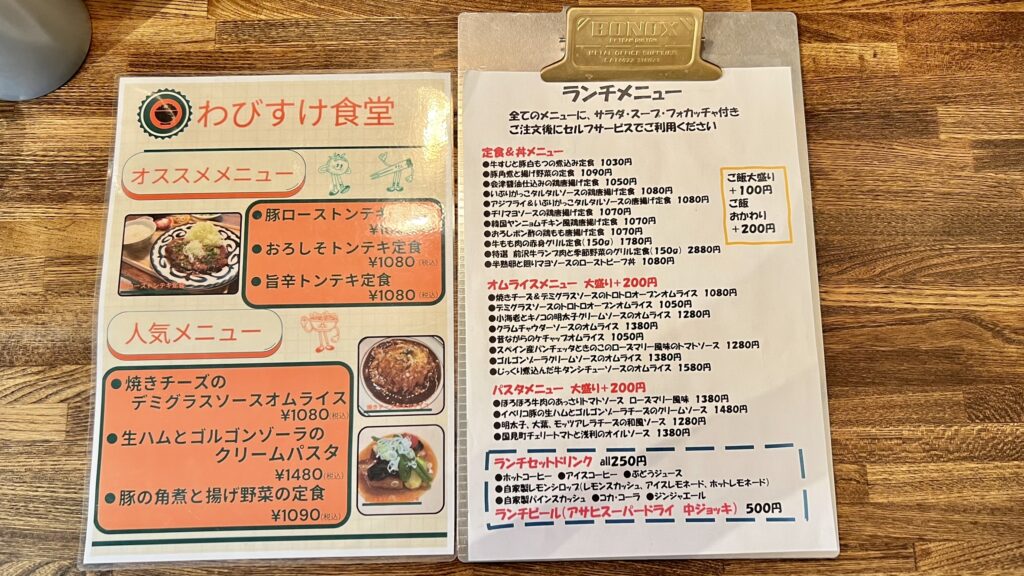 わびすけ食堂
オススメメニュー
●豚ローストンテキ
●おろしそトンテキ定食
¥1080(税込)
●旨辛トンテキ定食
¥1080(税込)
人気メニュー
●焼きチーズの
デミグラスソースオムライス
¥1080(税込)
●生ハムとゴルゴンゾーラの
クリームパスタ
¥1480(税込)
●豚の角煮と揚げ野菜の定食
¥1090(税込)
BONOX
ランチメニュー
全てのメニューに、サラダ・スープ・フォカッチャ付き
ご注文後にセルフサービスでご利用ください
定食&丼メニュー
●牛すじと豚白もつの煮込み定食 1030円
●豚角煮と揚げ野菜の定食 1090円
●会津醤油仕込みの鶏唐揚げ定食 1050円
●いぶりがっこタルタルソースの鶏唐揚げ定食 1080円
●アジフライ&いぶりがっこタルタルソースの唐揚げ定食 1080円
●チリマヨソースの鶏唐揚げ定食 1070円
●韓国ヤンニョムチキン風鶏唐揚げ定食 1070円
●おろしポン酢の鶏もも唐揚げ定食 1070円
●牛もも肉の赤身グリル定食(150g) 1780円
●特選 前沢牛ランプ肉と季節野菜のグリル定食(150g) 2880円
●半熟卵と照りマヨソースのローストビーフ丼 1080円
ご飯大盛り
+100円
ご飯
おかわり
+200円
オムライスメニュー 大盛り+200円
●焼きチーズ&デミグラスソースのトロトロオープンオムライス 1080円
●デミグラスソースのトロトロオープンオムライス 1050円
●小海老とキノコの明太子クリームソースのオムライス 1280円
●クラムチャウダーソースのオムライス 1380円
●昔ながらのケチャップオムライス 1050円
●スペイン産パンチェッタときのこのローズマリー風味のトマトソース 1280円
●ゴルゴンゾーラクリームソースのオムライス 1380円
●じっくり煮込んだ牛タンシチューソースのオムライス 1580円
パスタメニュー 大盛り+200円
●ほろほろ牛肉のあっさりトマトソース ローズマリー風味 1380円
●イベリコ豚の生ハムとゴルゴンゾーラチーズのクリームソース 1480円
●明太子、大葉、モッツアレラチーズの和風ソース 1280円
●国見町チェリートマトと浅利のオイルソース 1380円
ランチセットドリンク all250円
●ホットコーヒー ●アイスコーヒー ●ぶどうジュース
●自家製レモンシロップ(レモンスカッシュ、アイスレモネード、ホットレモネード)
●自家製パインスカッシュ ●コカ・コーラ ●ジンジャエール
ランチビール(アサヒスーパードライ 中ジョッキ) 500円